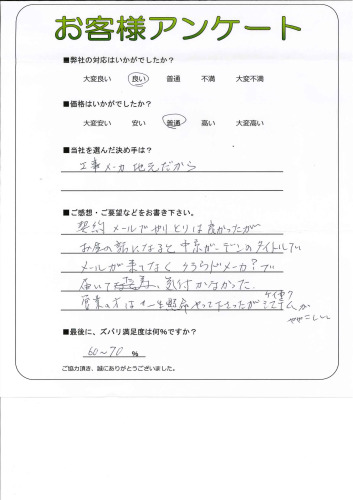 お客様アンケート
■弊社の対応はいかがでしたか?
大変良い 良い 普通 不満 大変不満
■価格はいかがですか?
大変安い 安い 普通 高い 大変高い
■当社を選んだ決め手は?
工事メーカ 地元だから
■ご感想・ご要望などをお書き下さい。
契約 メールでやりとりは良かったが
お金の部になると 中京ガーデンのタイトルで
メールが来てなく クラウドメーカ?で
届いて 気付かなかった.
営業の方は一生懸命やって下さったが システムが
ややこしい
■最後に、ズバリ満足度は何%ですか?
60~70 %
ご協力頂き、誠にありがとうございました。